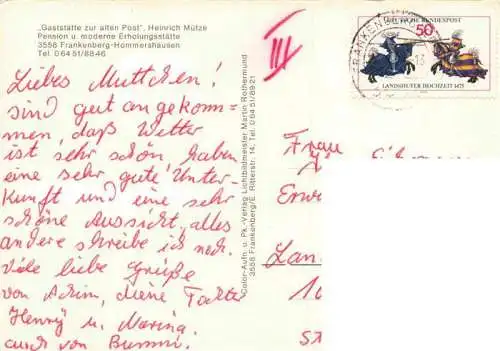 „Gaststätte zur alten Post", Heinrich Mütze
Pension u. moderne Erholungsstätte
3558 Frankenberg-Hommershausen
Tel. 0 64 51/88 46
Liebes Muttchen!
sind gut angekom=
men, daß Wetter
ist sehr schön, haben
eine sehr gute Unter-
kunft und eine sehr
schöne Aussicht, alles
andere schreibe ich noch.
Viele liebe Grüße
von Achim, deine Tochter
Henny u. Marina.
auch von Bummi.
Color-Aufn. u. Pk.-Verlag Lichtbildmeister Martin Rothermund
3558 Frankenberg/E. Ritterstr. 14, Tel. 0 64 51/89 21
III
FRANKENBERG
13
DEUTSCHE BUNDESPOST
50
LANDSHUTER HOCHZEIT 1475
Frau
Erw
Lan